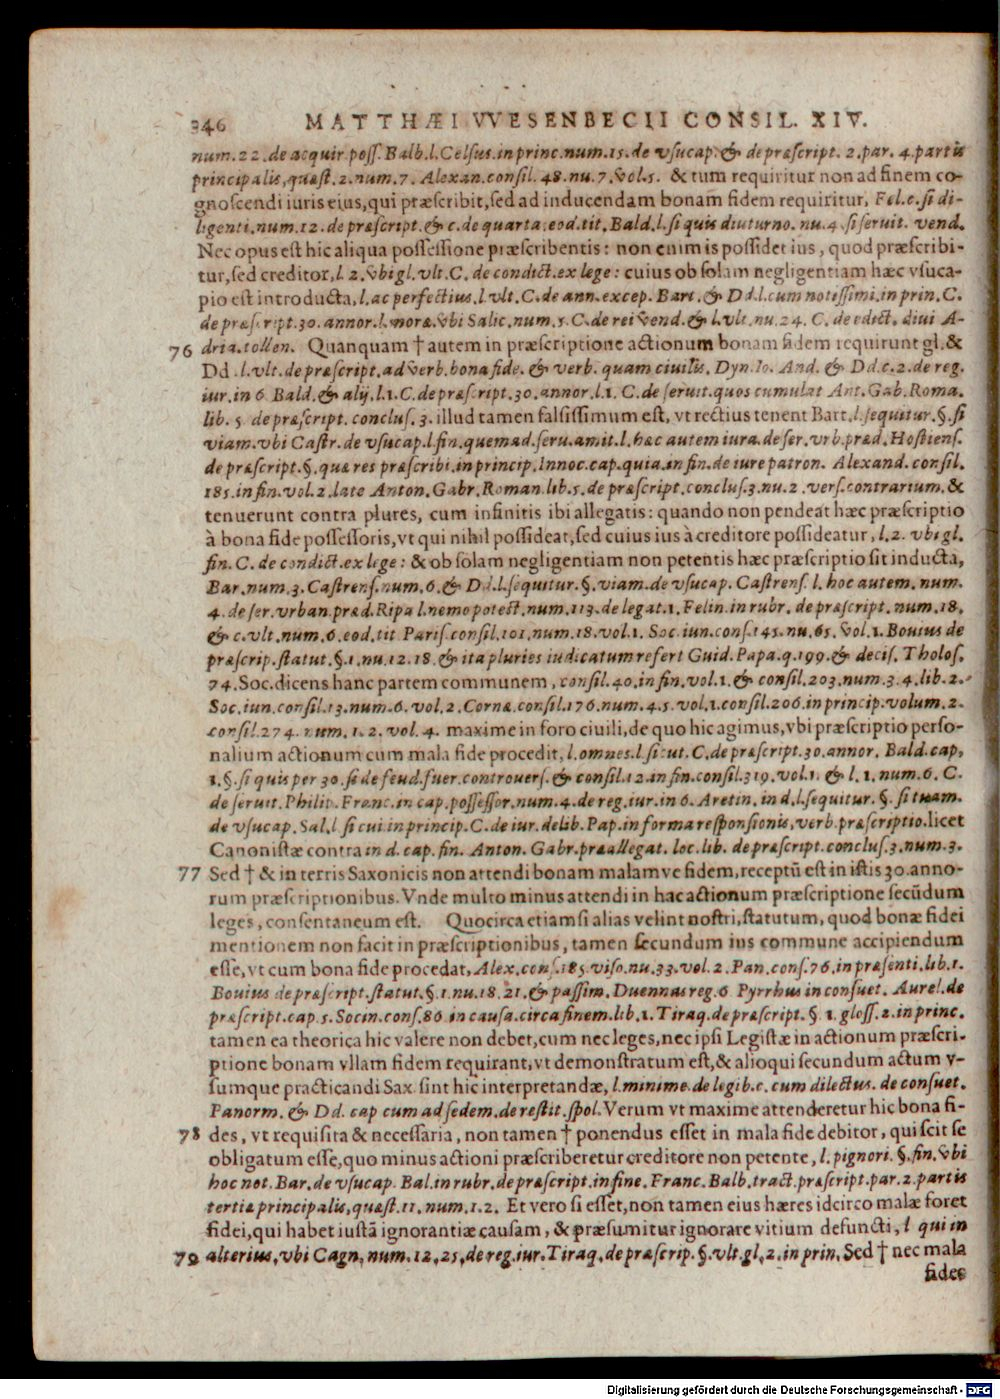 346 MATTHÆI VVESENBECII CONSIL. XIV.
num.22.de acquir.poss. Balb.l.Celsus.in princ.num.15.de vsucap.& de præscript. 2.par. 4.partis
principalis,quæst.2.num.7. Alexan.consil.48.nu.7.vol.5. & tum requiritur non ad finem co-
gnoscendi iuris eius,qui præscribit,sed ad inducendam bonam fidem requiritur, Fel.c.si di-
ligenti.num.12.de præscript.& c.de quarta.eod.tit. Bald.l.si quis diuturno. nu.4.si seruit. vend.
Nec opus est hic aliqua possessione præscribentis: non enim is possidet ius, quod præscribi-
tur,sed creditor,l.2.vbi gl.vlt.C.de condict.ex lege: cuius ob solam negligentiam hæc vsuca-
pio est introducta,l.ac perfectius.l.vlt.C.de ann.excep. Bart.& Dd.l.cum notissimi.in prin.C.
de præscript.30.annor.l.moræ.vbi Salic.num.5.C.de rei vend.& l.vlt.nu.24. C.de edict. diui A-
76 dria.tollen. Quanquam † autem in præscriptione actionum bonam fidem requirunt gl.&
Dd.l.vlt.de præscript.ad verb.bona fide. & verb. quam ciuilis. Dyn.Io. And. & Dd.c.2.de reg.
iur.in 6. Bald.& alij.l.1.C.de præscript.30.annor.l.1. C. de seruit.quos cumulat Ant. Gab. Roma.
lib. 5 de præscript. conclus. 3. illud tamen falsissimum est, vt rectius tenent Bart.l.sequitur.§.si
viam.vbi Castr.de vsucap.l.fin.quemad.seru.amit.l.hæc autem iura.de ser.vrb.præd. Hostiens.
de præscript.§.quæ res præscribi.in princip.Innoc.cap.quia.in fin.de iure patron. Alexand. consil.
185.in fin.vol.2.late Anton.Gabr.Roman.lib.5.de præscript.conclus.3.nu.2.vers.contrarium.&
tenuerunt contra plures, cum infinitis ibi allegatis: quando non pendeat hæc præscriptio
à bona fide possessoris,vt qui nihil possideat,sed cuius ius à creditore possideatur,l.2. vbi gl.
fin. C. de condict.ex lege: & ob solam negligentiam non petentis hæc præscriptio sit inducta,
Bar.num.3.Castrens.num.6.& Dd.l.sequitur.§.viam.de vsucap. Castrens. l. hoc autem. num.
4.de ser.vrban.præd.Ripa l.nemo potest.num.113.de legat.1. Felin.in rubr. de præscript. num.18.
& c.vlt.num.6.eod.tit Paris.consil.101.num.18.vol.1. Soc.iun.cons.145.nu.65.vol.1.Bouius de
præscrip.statut.§.1.nu.12.18.& ita pluries iudicatum refert Guid. Papa.q.199.& decis. Tholos.
74.Soc.dicens hanc partem communem, consil.40.in fin.vol.1.& consil.203.num.3.4.lib.2.
Soc.iun.consil.13.num.6.vol.2.Corne.consil.176.num.4.5.vol.1.consil.206.in princip.volum.2.
consil.274. num.1.2.vol.4. maxime in foro ciuili,de quo hic agimus,vbi præscriptio perso-
nalium actionum cum mala fide procedit,l.omnes.l.sicut.C.de præscript.30.annor. Bald.cap.
1.§.si quis per 30.si de feud.fuer.controuers.& consil.12.in fin.consil.319.vol.1. & l.1.num.6. C.
de seruit.Philip. Franc.in cap.possessor.num.4.de reg.iur.in 6. Aretin.in d.l.sequitur. §.si tuam.
de vsucap. Sal.l si cui.in princip.C.de iur.delib.Pap.in forma responsionis,verb.præscriptio.licet
Canonistæ contra in d. cap. fin. Anton. Gabr.præallegat. loc.lib. de præscript.conclus.3.num.3.
77 Sed † & in terris Saxonicis non attendi bonam malamve fidem,receptũ est in istis 30.anno-
rum præscriptionibus. Vnde multo minus attendi in hac actionum præscriptione secũdum
leges, consentaneum est. Quocirca etiamsi alias velint nostri,statutum, quod bonæ fidei
mentionem non facit in præscriptionibus, tamen secundum ius commune accipiendum
esse,vt cum bona fide procedat, Alex.cons.185.viso.nu.33.vol.2.Pan.cons.76.in præsenti.lib.1.
Bouius de præscript.statut.§.1.nu.18.21.& passim. Duennas reg.6 Pyrrhus in consuet. Aurel.de
præscript.cap.5.Socin.cons.86.in causa.circa finem.lib.1.Tiraq.de præscript. §.1.gloss.2.in princ.
tamen ea theorica hic valere non debet,cum nec leges,nec ipsi Legistæ in actionum præscri-
ptione bonam vllam fidem requirant,vt demonstratum est,& alioqui secundum actum v-
sumque practicandi Sax.sint hic interpretandæ, l.minime.de legib.c.cum dilectus. de consuet.
Panorm. & Dd. cap cum ad sedem.de restit.spol. Verum vt maxime attenderetur hic bona fi-
78 des, vt requisita & necessaria, non tamen † ponendus esset in mala fide debitor, qui scit se
obligatum esse,quo minus actioni præscriberetur creditore non petente, l.pignori. §.fin.vbi
hoc not. Bar.de vsucap. Bal.in rubr.de præscript.in fine. Franc. Balb.tract.præscript.par.2.partis
tertiæ principalis,quæst.11.num.1.2. Et vero si esset,non tamen eius hæres idcirco malæ foret
fidei,qui habet iustã ignorantiæ causam, & præsumitur ignorare vitium defuncti,l qui in
79 alterius,vbi Cagn.num.12.25.de reg.iur.Tiraq.de præscrip.§.vlt.gl.2.in prin. Sed † nec mala
fides
Digitalisierung gefördert durch die Deutsche Forschungsgemeinschaft - DFG